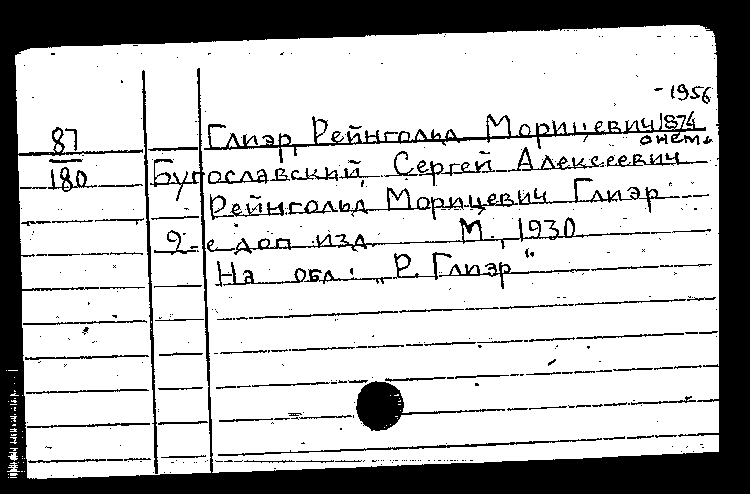 - 1956
87 Глиэр, Рейнгольд Морицевич 1874
о нем.
180 Бугославский, Сергей Алексеевич
Рейнгольд Морицевич Глиэр
2-е доп изд. М., 1930
На обл: „Р. Глиэр"